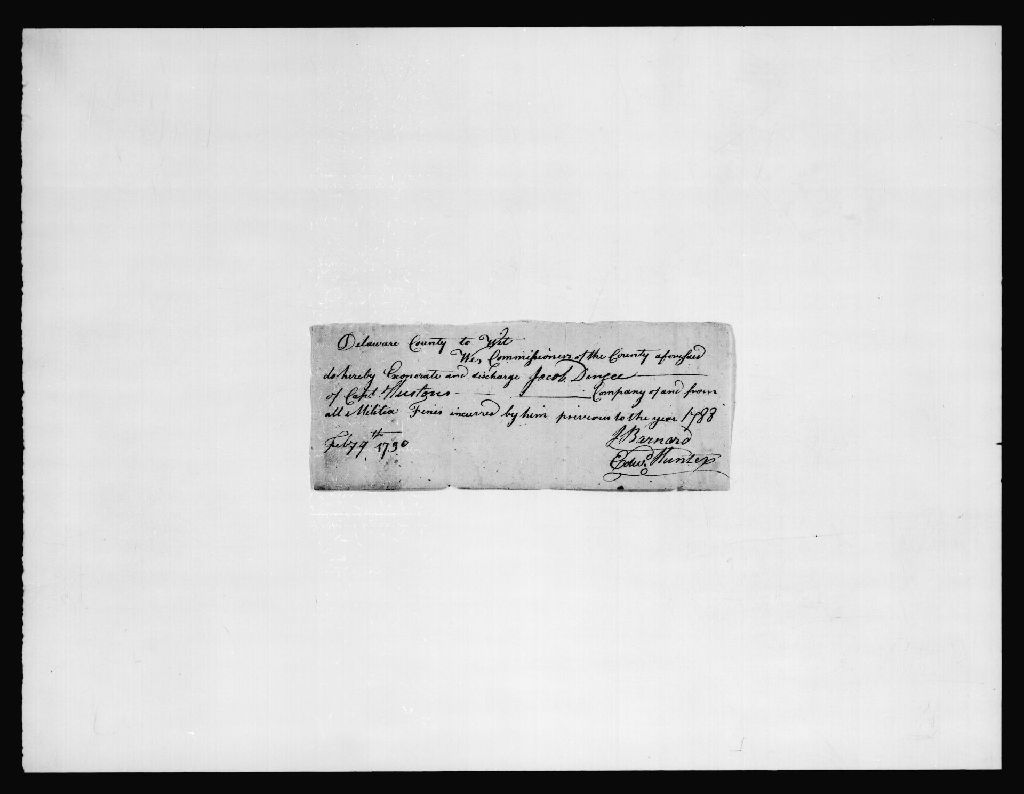 Delaware County to Wit
We, Commissioners of the County aforesaid
do hereby Exonerate and discharge Jacob Dingee
of Capt. Hustons Company of and from
all Militia Fines incurred by him previous to the year 1788
Feby 9th 1790
J Barnard
Edwd. Hunter